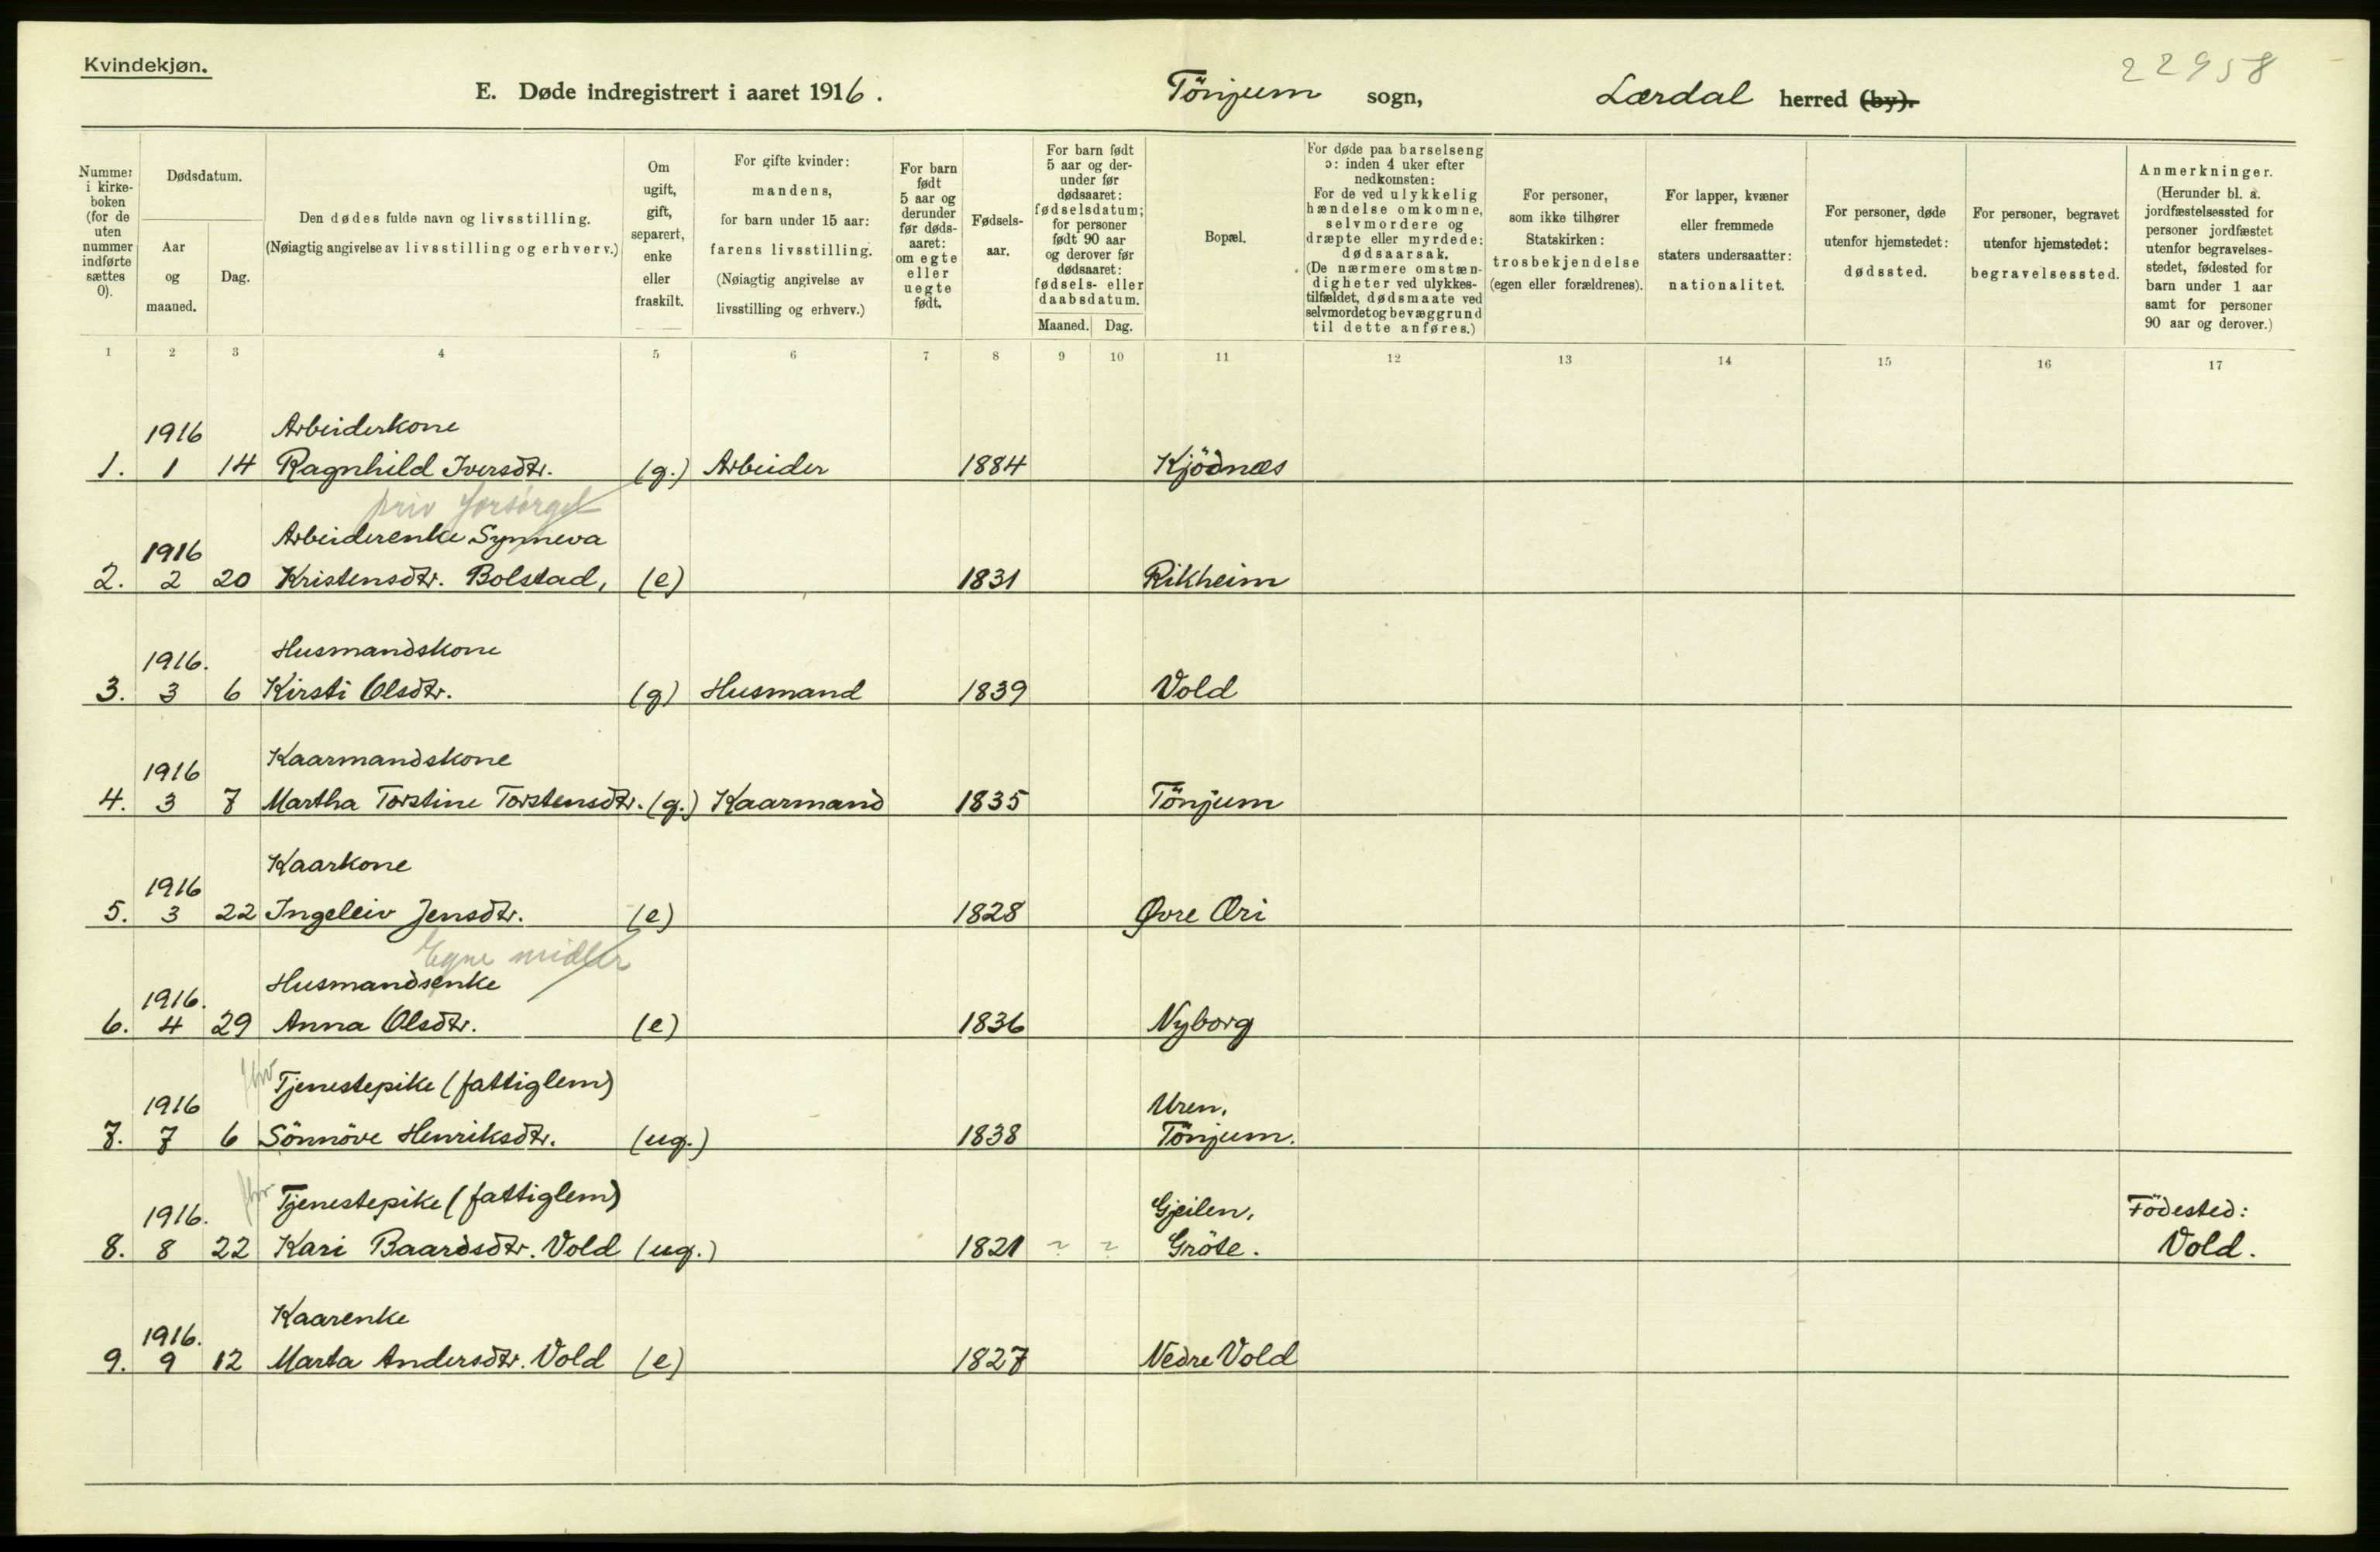 Kvindekjøn.
22958
E. Døde indregistrert i aaret 1916.
Tönjum sogn,
Lærdal herred (by).
Nummer i kirke-boken (for de uten nummer indførte sættes 0).
Dødsdatum.
Aar og maaned.
Dag.
Den dødes fulde navn og livsstilling.
(Nøiagtig angivelse av livsstilling og erhverv.)
Om ugift, gift, separert, enke eller fraskilt.
For gifte kvinder: mandens, for barn under 15 aar: farens livsstilling.
(Nøiagtig angivelse av livsstilling og erhverv.)
For barn født 5 aar og derunder før døds-aaret: om egte eller uegte født.
Fødsels-aar.
For barn født 5 aar og der-under før dødsaaret: fødselsdatum; for personer født 90 aar og derover før dødsaaret: fødsels- eller daabsdatum.
Maaned. Dag.
Bopæl.
For døde paa barselseng ɔ: inden 4 uker efter nedkomsten:
For de ved ulykkelig hændelse omkomne, selvmordere og dræpte eller myrdede: dødsaarsak.
(De nærmere omstæn-digheter ved ulykkes-tilfældet, dødsmaate ved selvmordet og bevæggrund til dette anføres.)
For personer, som ikke tilhører Statskirken: trosbekjendelse (egen eller forældrenes).
For lapper, kvæner eller fremmede staters undersaatter: nationalitet.
For personer, døde utenfor hjemstedet: dødssted.
For personer, begravet utenfor hjemstedet: begravelsessted.
Anmerkninger.
(Herunder bl. a. jordfæstelsessted for personer jordfæstet utenfor begravelses-stedet, fødested for barn under 1 aar samt for personer 90 aar og derover.)
1 2 3 4 5 6 7 8 9 10 11 12 13 14 15 16 17
1916 Arbeiderkone
1. 1 14 Ragnhild Iversdtr. (g.) Arbeider 1884 Kjödnæs
priv forsörget
1916 Arbeiderenke Synneva
2. 2 20 Kristensdtr. Bolstad, (e) 1831 Rikheim
1916. Husmandskone
3. 3 6 Kirsti Olsdtr. (g) Husmand 1839 Vold
1916 Kaarmandskone
4. 3 7 Martha Torstine Torstensdtr. (g.) Kaarmand 1835 Tönjum
1916 Kaarkone
5. 3 22 Ingeleiv Jensdtr. (e) 1828 Øvre Æri
Egne midler
1916. Husmandsenke
6. 4 29 Anna Olsdtr. (e) 1836 Nyborg
1916 Tjenestepike (fattiglem) Uren,
7. 7 6 Sönnöve Henriksdtr. (ug.) 1838 Tönjum.
1916. Tjenestepike (fattiglem) Gjeilen, Födested:
8. 8 22 Kari Baardsdtr. Vold (ug.) 1821 ? ? Gröte. Vold.
1916. Kaarenke
9. 9 12 Marta Andersdtr. Vold (e) 1827 Nedre Vold